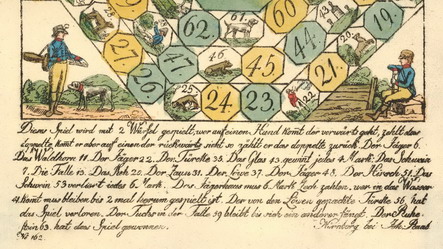 62.
61.
60
19.
27.
44.
20.
46
45.
21.
26.
25
24
23.
22
Dieses Spiel wird mit 2 Würfel gespielt, wer auf einen Hund komt der vorwärts geht, zahlt das
doppelte komt er aber auf einen der rückwärts sieht so zählt er das doppelte zurück. Der Jäger 6.
Das Waldhorn 11. Der Jäger 22. Der Türke 35. Das Glas 43. gewint jedes 4 Mark. Das Schwein
7. Die Falle 13. Das Reh 20. Der 31. Der Löwe 37. Der Jäger 48. Der Hirsch 51. Das
Schwein 53 verliert jedes 6 Mark. Das Jägerhaus mus 6 Mark zahlen. war in das Wasser
komt mus bleiben bis 2 mal herum gespielt ist. Der von den Löwen gejackte 56, hat
das Spiel verloren. Der Fuchs in der Falle 59 bleibt bis ein anderer fängt. Der
63. hat das Spiel gewonnen.
Nürnberg bei Joh.
No 162.